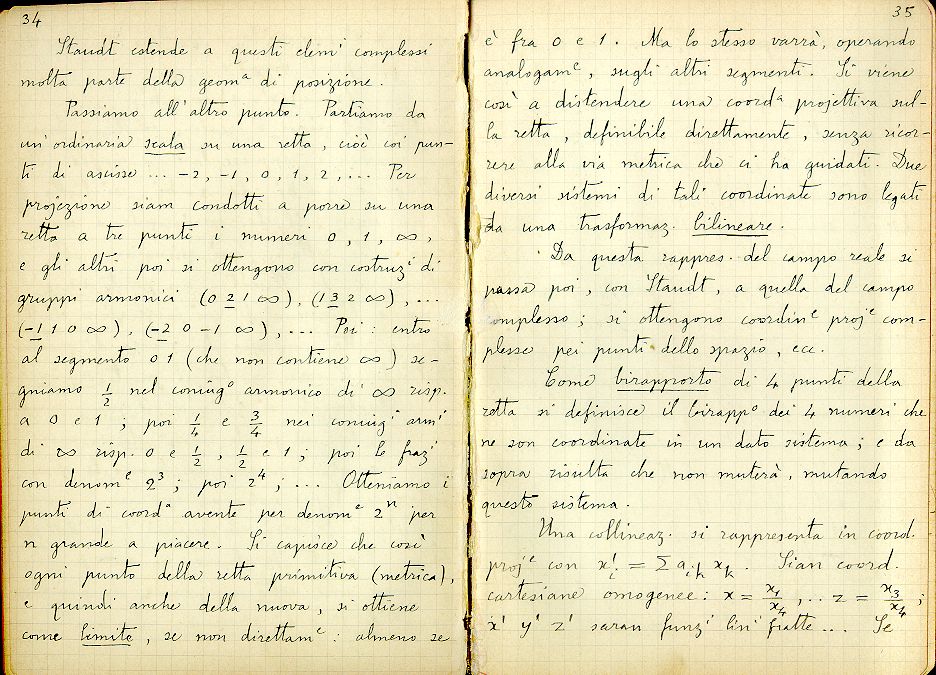 34
Staudt estende a questi elemⁱ complessi
molta parte della geomᵃ di posizione.
Passiamo all'altro punto. Partiamo da
un'ordinaria scala su una retta, cioè coi pun-
ti di ascisse ... -2, -1, 0, 1, 2, ... Per
projezione siam condotti a porre su una
retta a tre punti i numeri 0, 1, ∞,
e gli altri poi si ottengono con costruzⁱ di
gruppi armonici (0 2 1 ∞), (1 3 2 ∞), ...
(-1 1 0 ∞), (-2 0 -1 ∞), ... Poi: entro
al segmento 0 1 (che non contiene ∞) se-
gniamo 1/2 nel coniugᵒ armonico di ∞ risp.
a 0 e 1; poi 1/4 e 3/4 nei coniugⁱ armⁱ
di ∞ risp. 0 e 1/2, 1/2 e 1; poi le frazⁱ
con denomᵉ 2³; poi 2⁴; ... Otteniamo i
punti di coordᵃ avente per denomᵉ 2ⁿ per
n grande a piacere. Si capisce che così
ogni punto della retta primitiva (metrica),
e quindi anche della nuova, si ottiene
come limite, se non direttamᵉ: almeno se
35
è fra 0 e 1. Ma lo stesso varrà, operando
analogamᵉ, sugli altri segmenti. Si viene
così a distendere una coordᵃ projettiva sul-
la retta, definibile direttamente, senza ricor-
rere alla via metrica che ci ha guidati. Due
diversi sistemi di tali coordinate sono legati
da una trasformaz. bilineare.
Da questa rappres. del campo reale si
passa poi, con Staudt, a quella del campo
complesso; si ottengono coordinᵉ projᵉ com-
plesse pei punti dello spazio, ecc.
Come birapporto di 4 punti della
retta si definisce il birappᵒ dei 4 numeri che
ne son coordinate in un dato sistema; e da
sopra risulta che non muterà, mutando
questo sistema.
Una collineaz. si rappresenta in coord.
projᵉ con x'ᵢ = Σ aᵢₖ xₖ. Sian coord.
cartesiane omogenee: x = x₁/x₄, .. z = x₃/x₄;
x' y' z' saran funzⁱ linⁱ fratte ... Se